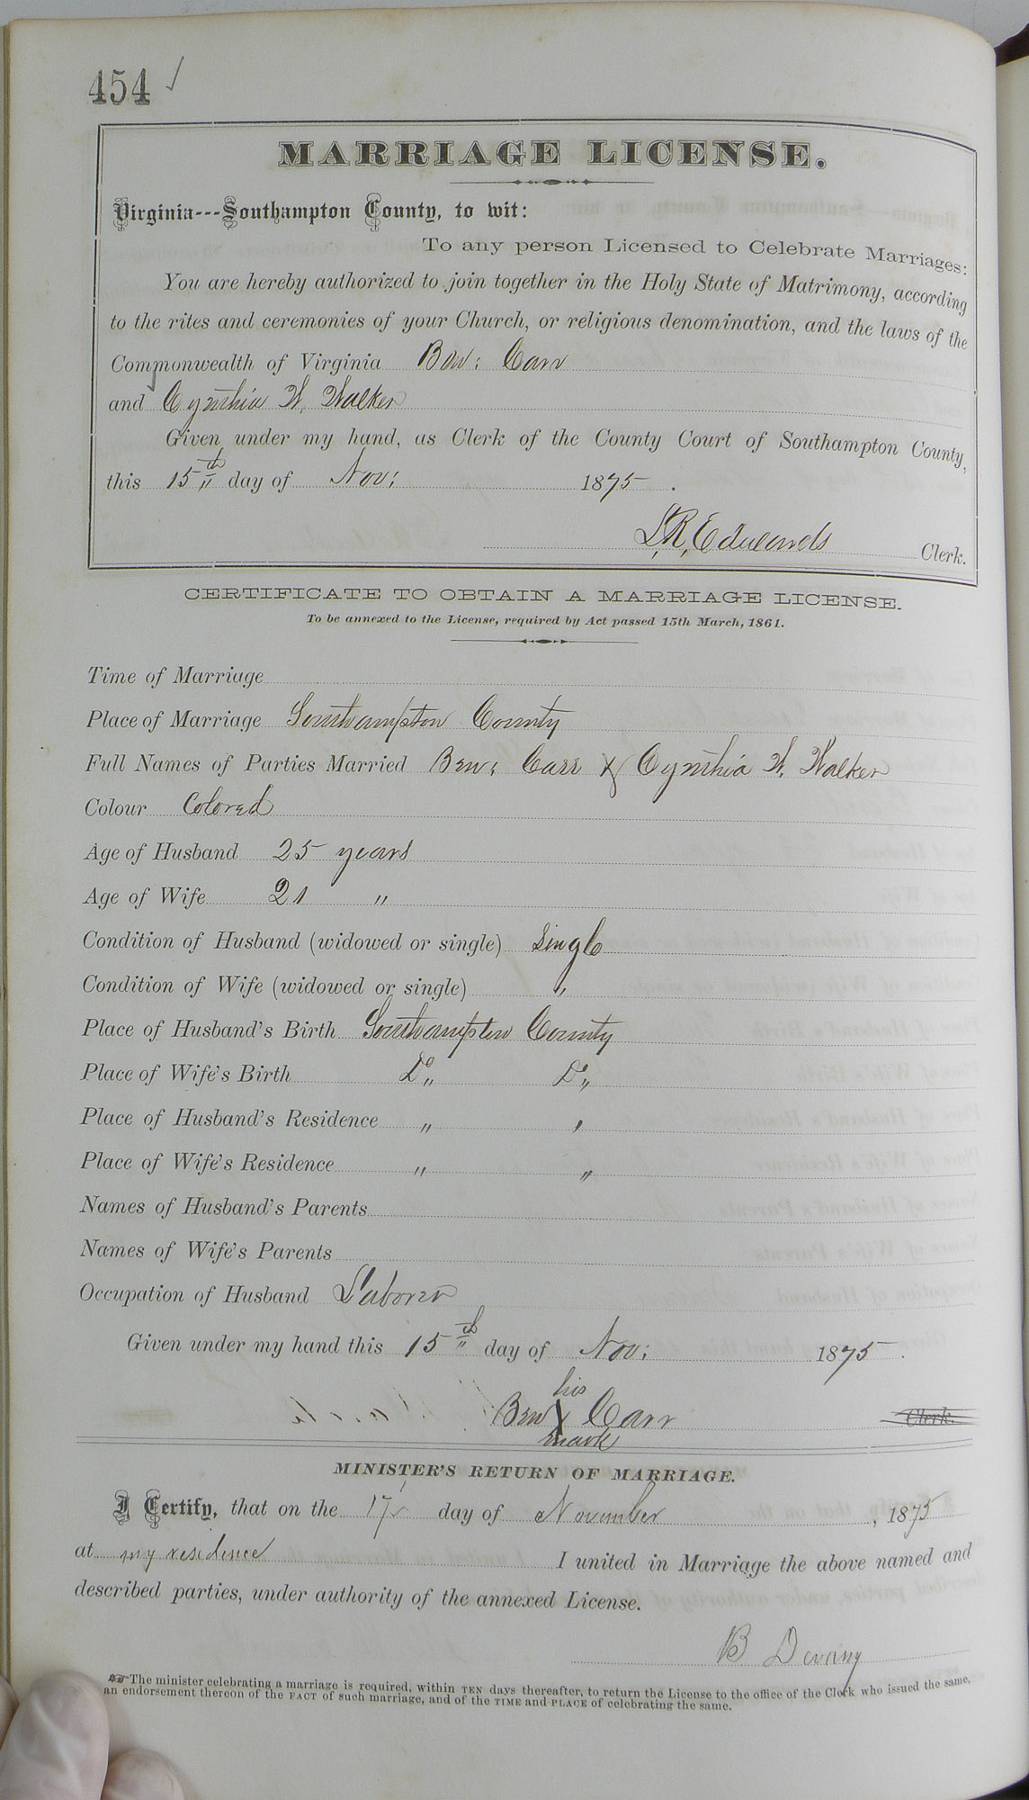 454 ✓
MARRIAGE LICENSE.
Virginia---Southampton County, to wit:
To any person Licensed to Celebrate Marriages:
You are hereby authorized to join together in the Holy State of Matrimony, according
to the rites and ceremonies of your Church, or religious denomination, and the laws of the
Commonwealth of Virginia Ben: Carr
and Cynthia W. Walker
Given under my hand, as Clerk of the County Court of Southampton County,
this 15th day of Nov: 1875.
L. R. Edwards Clerk.
CERTIFICATE TO OBTAIN A MARRIAGE LICENSE.
To be annexed to the License, required by Act passed 15th March, 1861.
Time of Marriage
Place of Marriage Southampton County
Full Names of Parties Married Ben: Carr & Cynthia W. Walker
Colour Colored
Age of Husband 25 years
Age of Wife 21 "
Condition of Husband (widowed or single) Single
Condition of Wife (widowed or single) "
Place of Husband's Birth Southampton County
Place of Wife's Birth Do " Do "
Place of Husband's Residence " "
Place of Wife's Residence " "
Names of Husband's Parents
Names of Wife's Parents
Occupation of Husband Laborer
Given under my hand this 15th day of Nov: 1875.
his
Ben X Carr Clerk.
mark
MINISTER'S RETURN OF MARRIAGE.
I Certify, that on the 17 day of November, 1875
at my residence I united in Marriage the above named and
described parties, under authority of the annexed License.
B
☞ The minister celebrating a marriage is required, within TEN days thereafter, to return the License to the office of the Clerk who issued the same,
an endorsement thereon of the FACT of such marriage, and of the TIME and PLACE of celebrating the same.